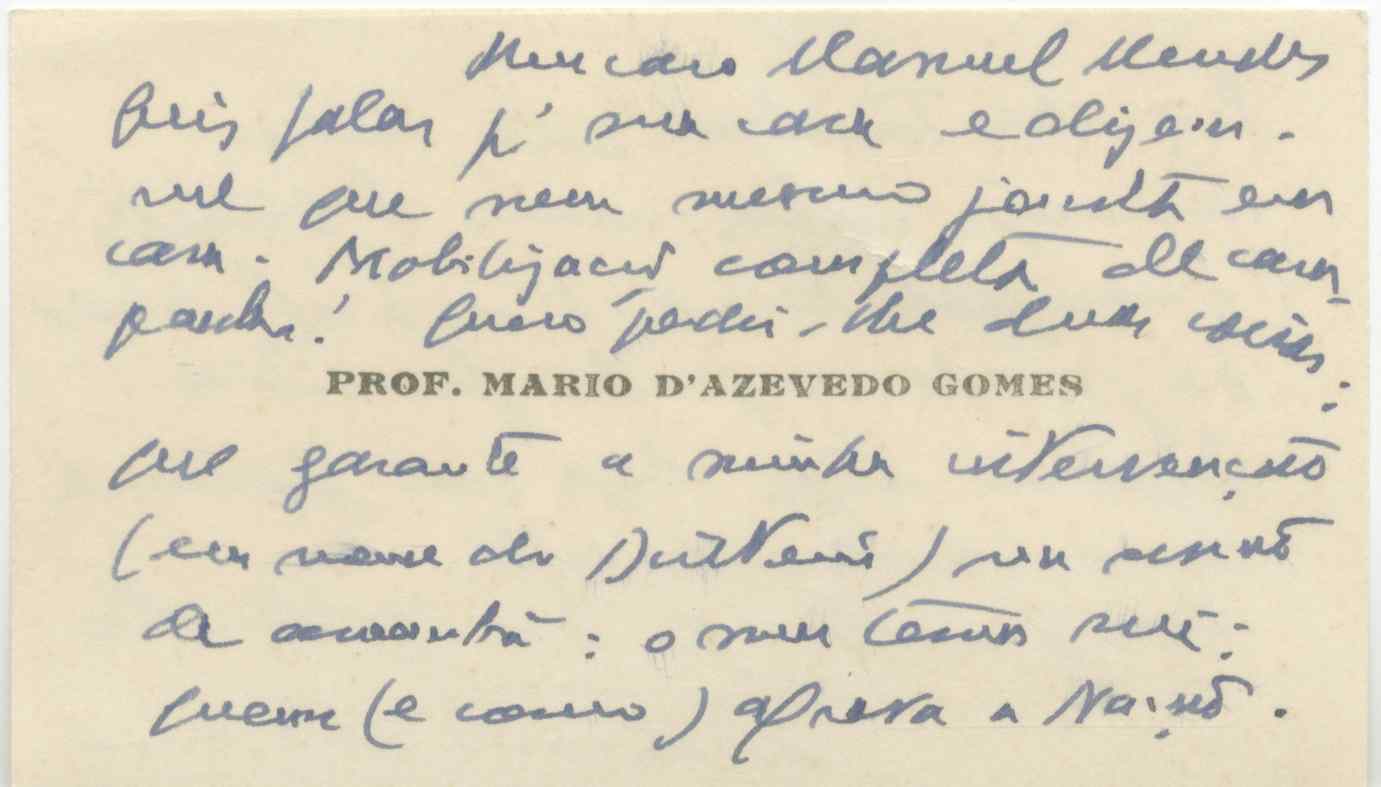 Meu caro Manuel Mendes
Quis falar p' sua casa e dizem-
me que nem mesmo janta em
casa. Mobilização completa de cam-
panha! Quero pedir-lhe duas coisas:
PROF. MARIO D'AZEVEDO GOMES
que garanta a minha intervenção
(em nome do Directorio) na
de amanhã: o seu
quem (e como)